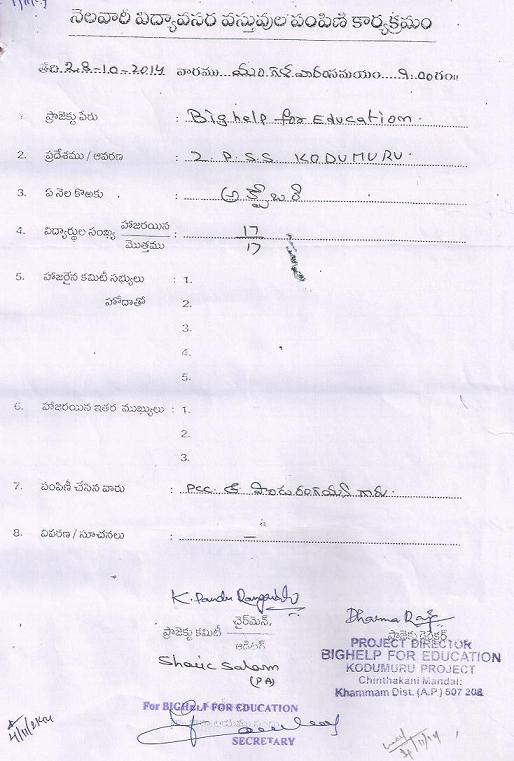 నెలవారీ విద్యావసర వస్తువుల పంపిణి కార్యక్రమం
తేది 28-10-2014 వారము మంగళవారం సమయం 9.00గం॥
1. ప్రాజెక్టు పేరు : Bighelp for Education.
2. ప్రదేశము / ఆవరణ : Z.P.S.S. KODUMURU.
3. ఏ నెల కొఱకు : అక్టోబర్
4. విద్యార్థుల సంఖ్య హాజరయిన : 17
మొత్తము 17
5. హాజరైన కమిటీ సభ్యులు : 1.
హోదాతో 2.
3.
4.
5.
6. హాజరయిన ఇతర ముఖ్యులు : 1.
2.
3.
7. పంపిణీ చేసిన వారు : PCC. K. పాండురంగయ్య గారు.
8. వివరణ / సూచనలు : —
K. Pandu Rangaiah
Dharma Raju
ప్రాజెక్టు కమిటీ ఛైర్‌మెన్,
ఆడిటర్
ప్రాజెక్టు డైరెక్టర్
PROJECT DIRECTOR
BIGHELP FOR EDUCATION
KODUMURU PROJECT
Chinthakani Mandal:
Khammam Dist. (A.P) 507 208
(PA)
For BIGHELP FOR EDUCATION
SECRETARY